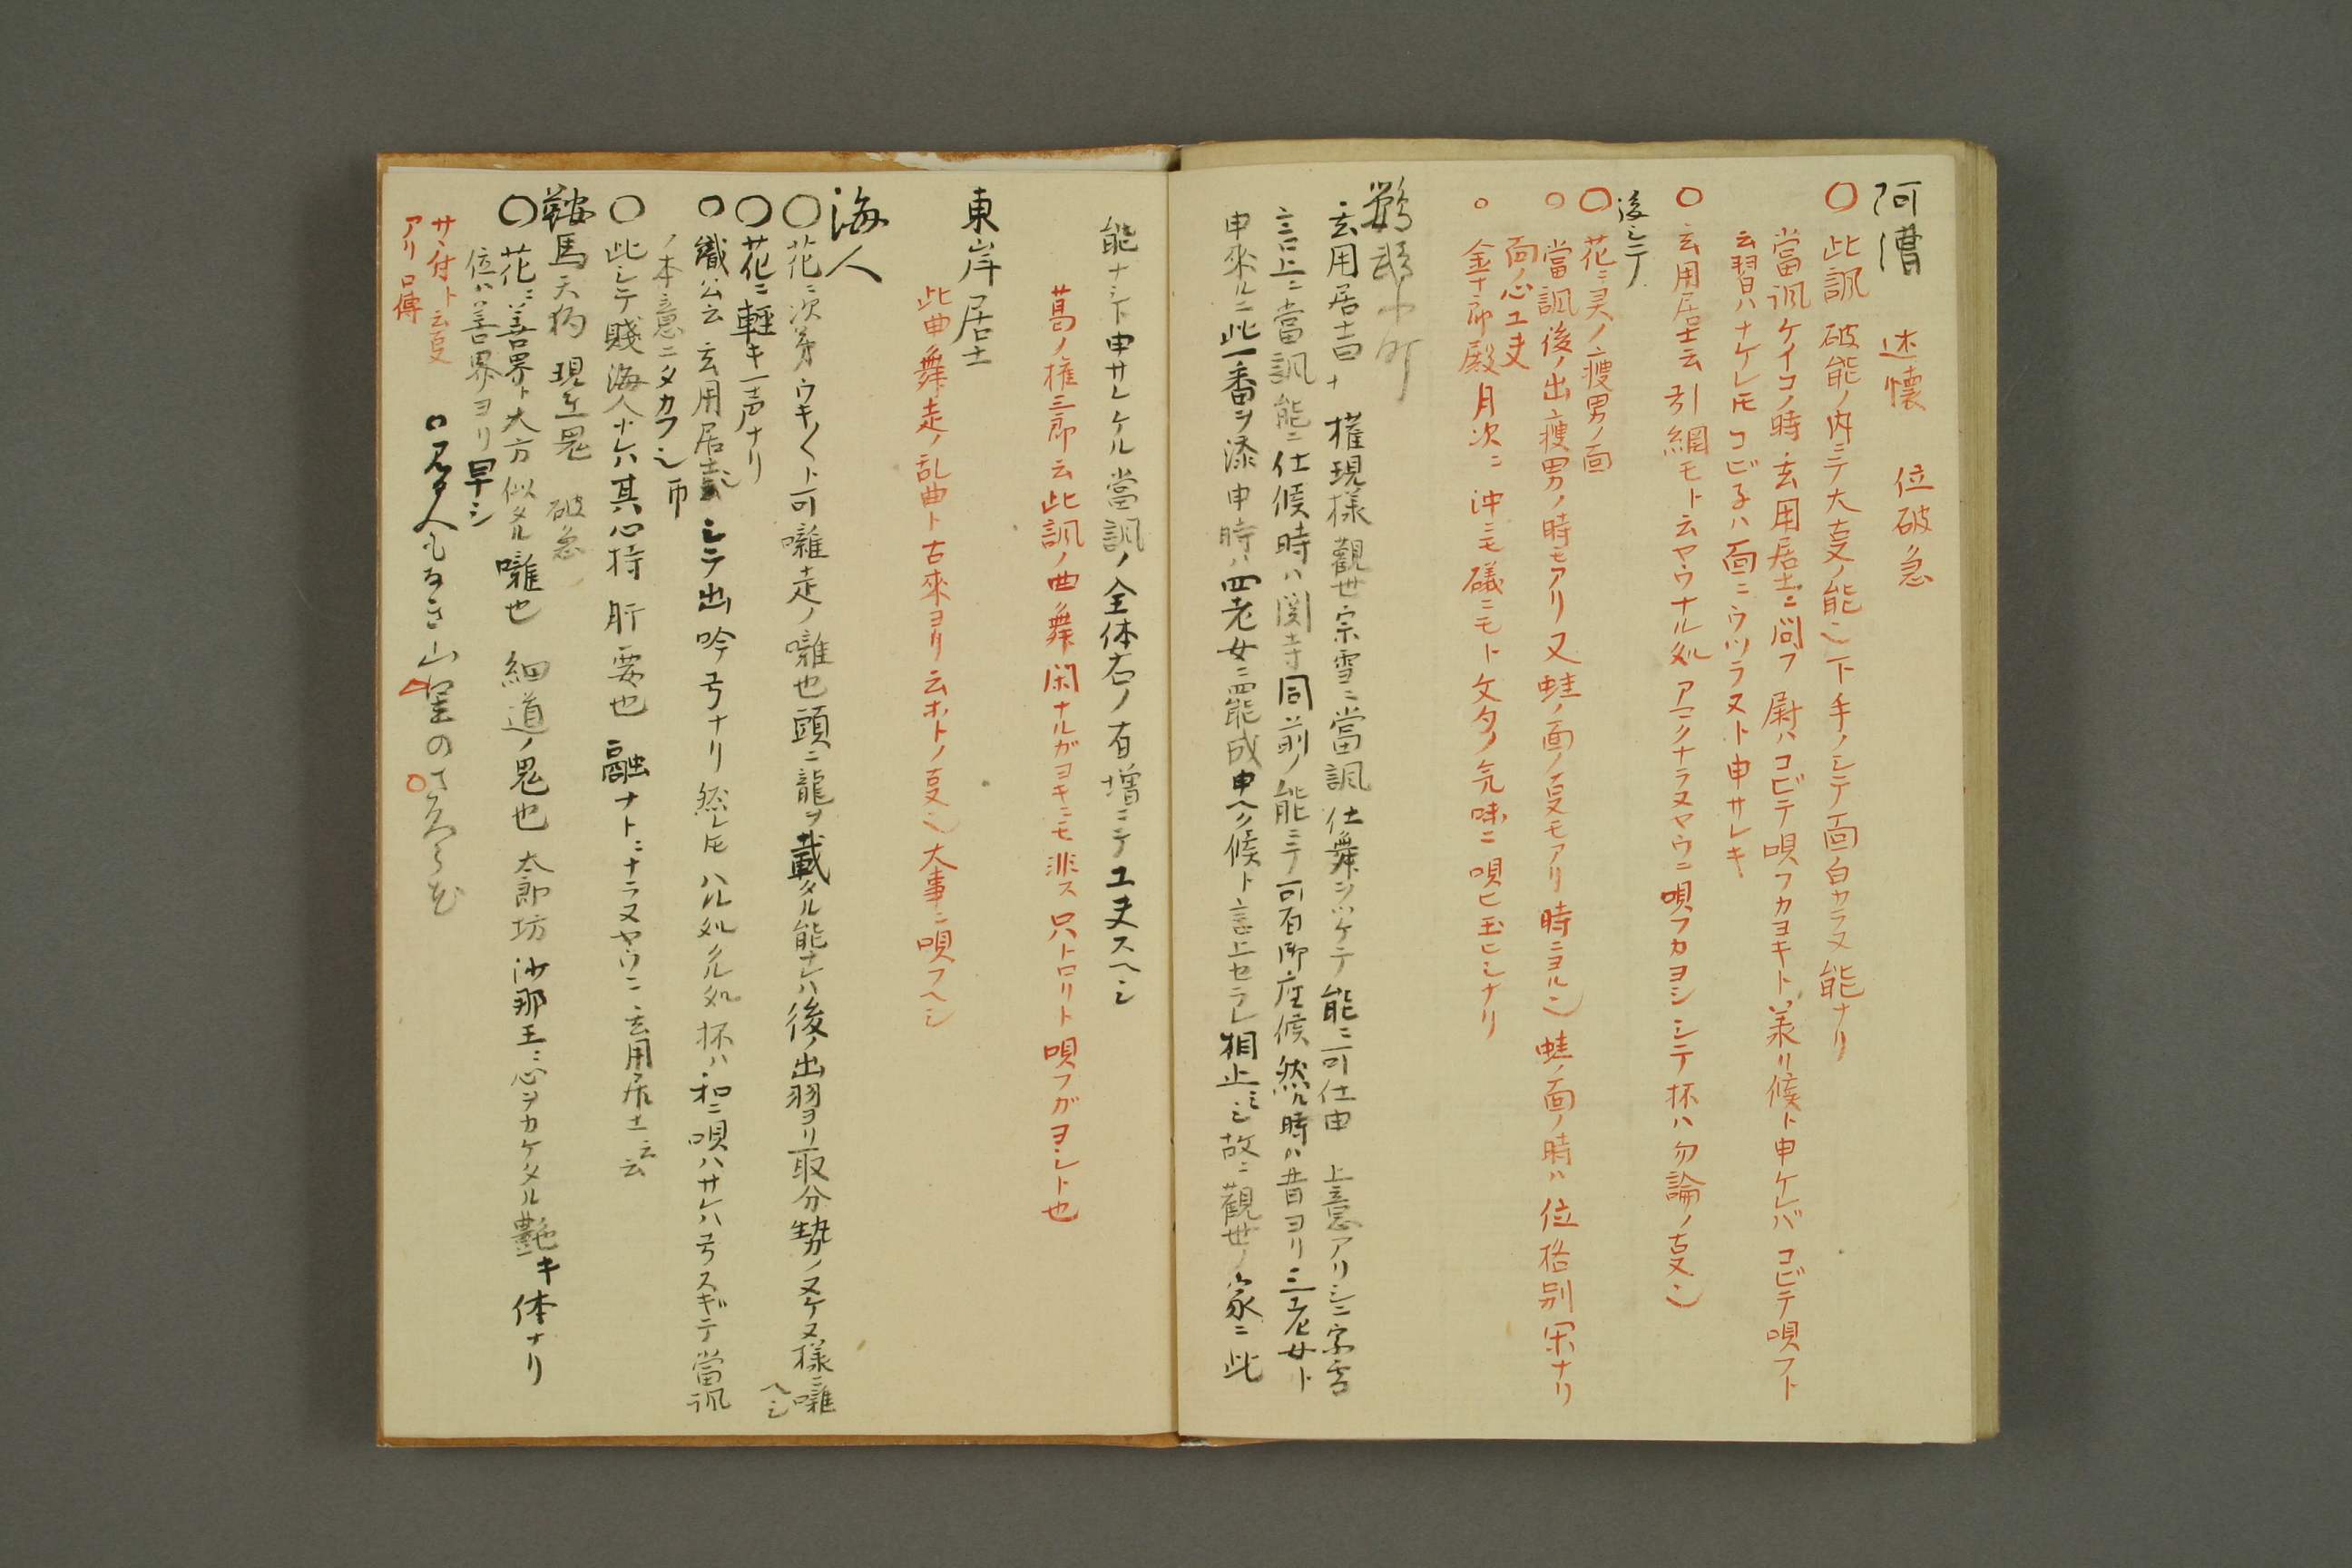 阿漕 述懐 位破急
〇此諷破能ノ内ニテ大事ノ能也下手ノシテ面白カラヌ能ナリ
當諷ケイコノ時玄用居士ニ問フ尉ハコビテ唄フカヨキト承リ候ト申ケレバコビテ唄フト
云習ハナケレ𪜈コビ子ハ面ニウツラヌト申サレキ
〇玄用居士云引網モト云ヤウナル処アミクナラヌヤウニ唄フカヨシシテ杯ハ勿論ノ事也
後シテ
〇花ニ灵ノ痩男ノ面
〇當諷後ノ出痩男ノ時モアリ又蛙ノ面ノ事モアリ時ニヨル也蛙ノ面ノ時ハ位格別ナリ
面ノ心工夫
〇金十郎殿月次ニ沖ニモ礒ニモト文句ノ気味ニ唄ヒ玉ヒシナリ
鸚鵡小町
玄用居士曰ク權現様觀世宗雪ニ當諷仕舞ヲツケテ能ニ可仕由上意アリシニ宗雪
言上ニ當諷能ニ仕候時ハ関寺同前ノ能ニテ可有御座候然ル時ハ昔ヨリ三老女ト
申来ルニ此一番ヲ添申時ハ四老女ニ罷成申ヘク候ト言上セラレ相止ミシ故ニ觀世ノ家ニ此
能ナシト申サレケル當諷ノ全体右ノ有増ニテ工夫スヘシ
葛ノ権三郎云此諷ノ曲舞閑ナルガヨキニモ非ス只トロリト唄フガヨシト也
東岸居士
此曲舞走ノ乱曲ト古来ヨリ云ホトノ事也大事ニ唄フヘシ
海人
〇花ニ次第ウキ〳〵ト可囃走ノ囃也頭ニ龍ヲ載タル能ナレハ後ノ出羽ヨリ取分勢ノヌケヌ様ニ囃ヘシ
〇花ニ軽キ一声ナリ
〇織公云玄用居士シテ出吟弓ナリ然レ𪜈ハル処クル処杯ハ和ニ唄ハサレハ弓スギテ當諷
ノ本意ニタカフシ而
〇此シテ賤海人ナレハ其心持肝要也融ナトニナラヌヤウニ玄用居士云云
鞍馬天狗 現在鬼 破急
〇花ニ善界ト大方似タル囃也細道ノ鬼也太郎坊沙那王ニ心ヲカケタル艶キ体ナリ
位ハ善界ヨリ早シ
サシ付ト云事
アリ口傳
〇見る人もなき山里のさくら花